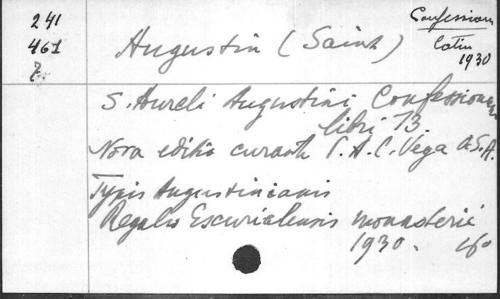 241
461
Augustin (Saint)
Confessions
latin
1930
S. Aureli Augustini Confessionum
libri 13
Nova editio curante P. A. C. Vega O.S.A.
Typis Augustinianis
Regalis Escurialensis monasterii
1930.